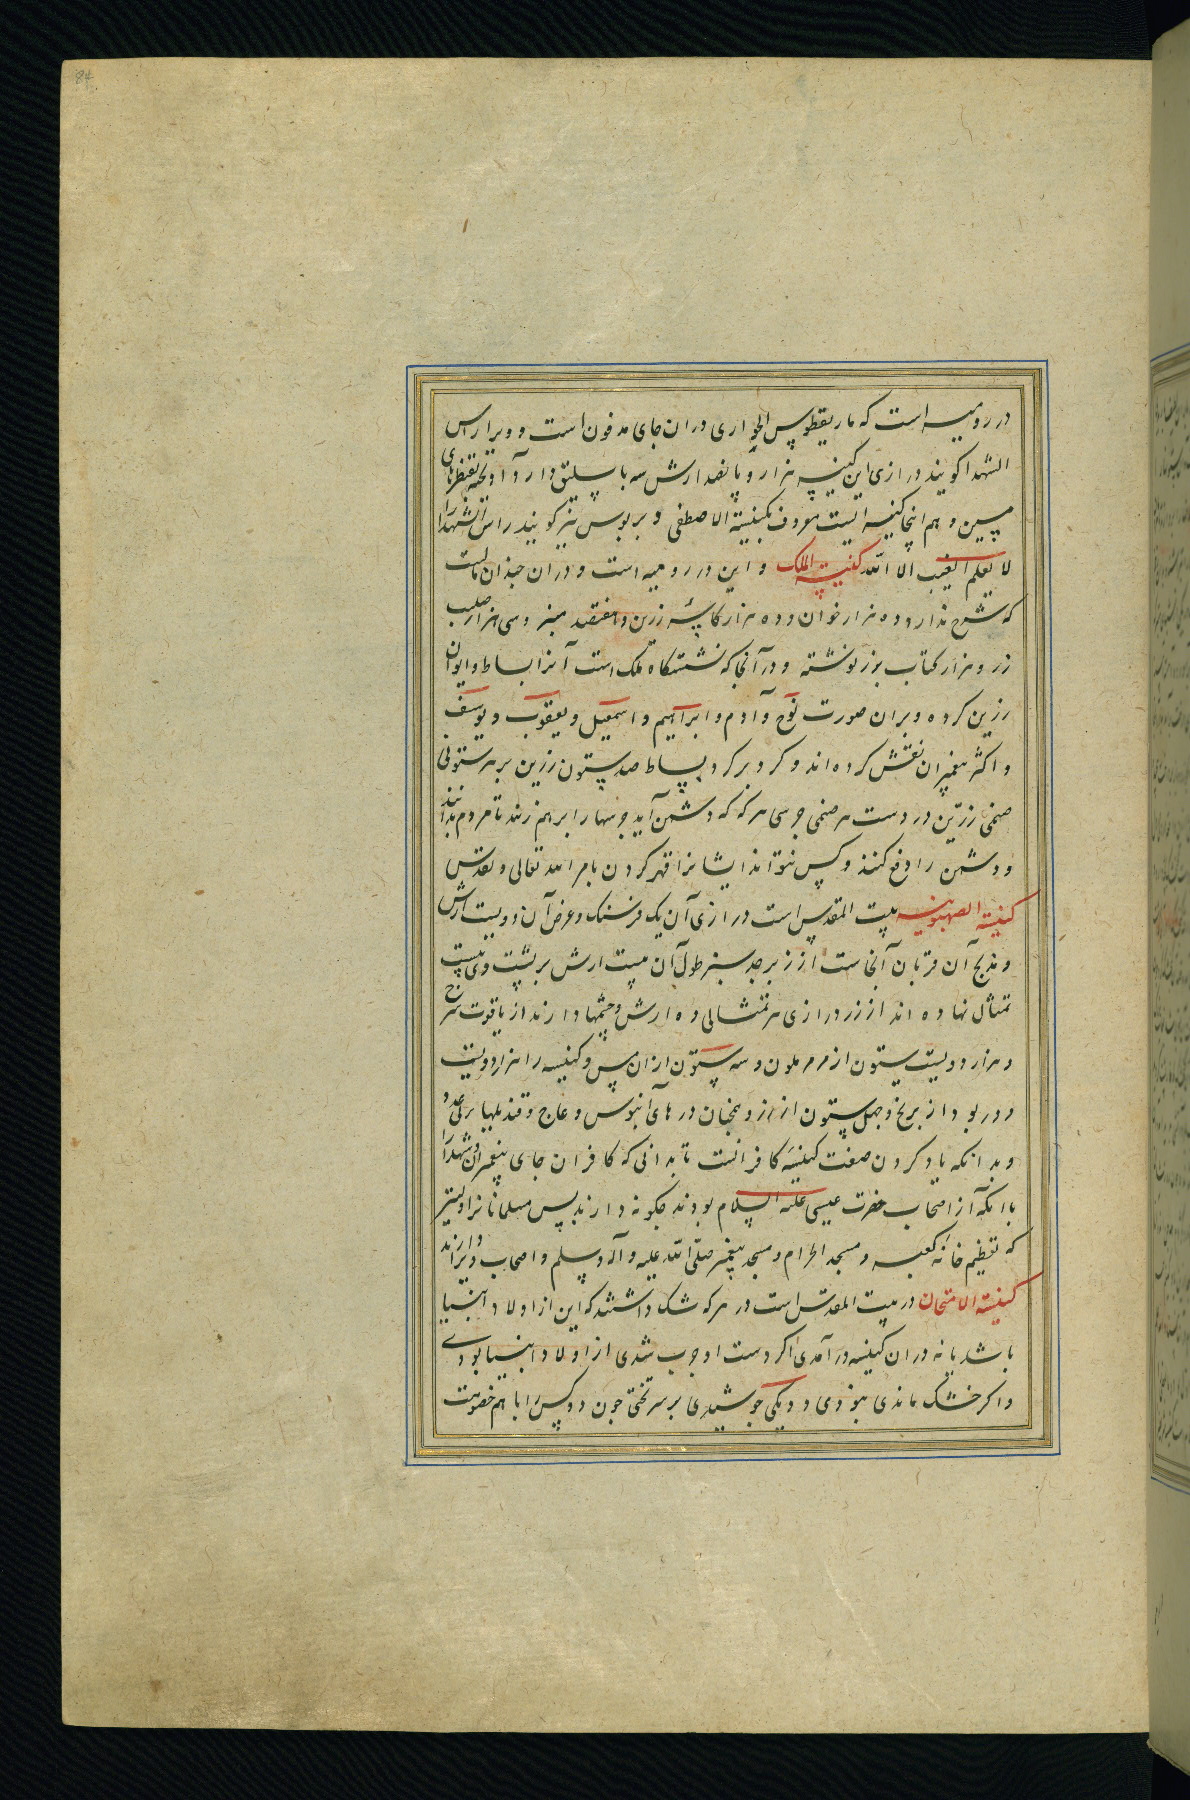 84
در رومیه است که ماریقطوس الحواری دران جای مدفون است و ویرا راس
الشهدا کویند درازی این کنیسه هزار و پانصد ارش سه باسلیق دارد
میین و هم اینجا کنیسه ایست معروف بکنیسة الاصطفی و بربوس نیز کویند راس الشهدا را
لا یعلم الغیب الا الله کنیسة الملک و این در رومیه است و دران چندان مالست
که شرح ندارد و ده هزار خوان و ده هزار کاسه زرین و هفتصد منبر و سی هزار صلیب
زر و هزار کتاب بزر نوشته و در آنجا که نشستکاه ملک است آنرا بساط و ایوان
زرین کرده و بران صورت نوح و آدم و ابراهیم و اسمعیل و یعقوب و یوسف
و اکثر پیغمبران نقش کرده اند و کرد بر کرد بساط صد ستون زرین بر هر ستونی
صنمی زرّین در دست هر صنمی جرسی هر که که دشمن آید جرسها را بر هم زنند تا مردم بدانند
و دشمن را دفع کنند و کس نتواند ایشانرا قهر کردن بامر الله تعالی و تقدس
کنیسة الصهیونیه بیت المقدس است درازی آن یک فرسنک و عرض آن دویست ارش
و مذبح آن قربان آنجاست از زبرجد سبز طول آن بیست ارش بر بیست
تمثال نهاده اند از زر درازی هر تمثالی ده ارش و چشمها دارند از یاقوت سرخ
و هزار و دویست ستون از مرمر ملون و سه ستون ازان مس و کنیسه را هزار و دویست
در بود از برنج و چهل ستون از زر و همچنان درهای آبنوس و عاج و قندیلها
و بدانکه یاد کردن صفت کنیسهٔ کافرانست تا بدانی که کافران جای پیغمبران و شهدا را
با انکه آز اصحاب حضرت عیسی علیه السلام بودند چکونه دارند پس مسلمانانرا اولیتر
که تعظیم خانه کعبه و مسجد الحرام و مسجد پیغمبر صلّی الله علیه و آله و سلم و اصحاب ویرا دارند
کنیسة الامتحان در بیت المقدس است در هر که شک داشتند که این از اولاد انبیا
باشد یا نه دران کنیسه درآمدی اکر دست او چرب شدی از اولاد انبیا بودی
و اکر خشک ماندی نبودی و دیکی جوشیدی بر سر تختی چون دو کس را با هم خصومت